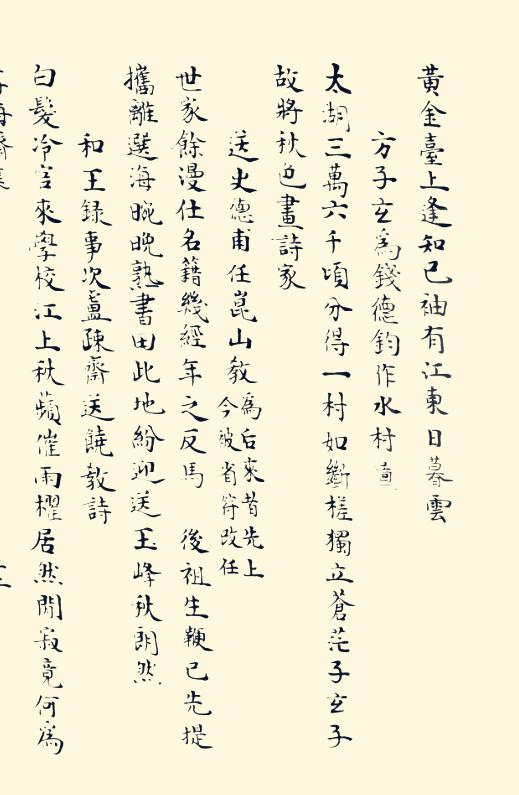 黃金臺上逢知己袖有江東日暮雲
方子玄為錢德鈞作水村
太湖三萬六千頃分得一村如斷槎獨立蒼茫子玄子
故將秋色畫詩家
送史德甫任崑山教
為后來昔先上
今被省符改任
世家餘漫仕名籍幾經年之反馬後祖生鞭已先提
攜離選海晼晚熟書田此地紛迎送玉峰秋朗然
和王録事次盧疎齋送饒教詩
白髮冷官來學校江上秋蘋催雨櫂居然閒寂竟何為